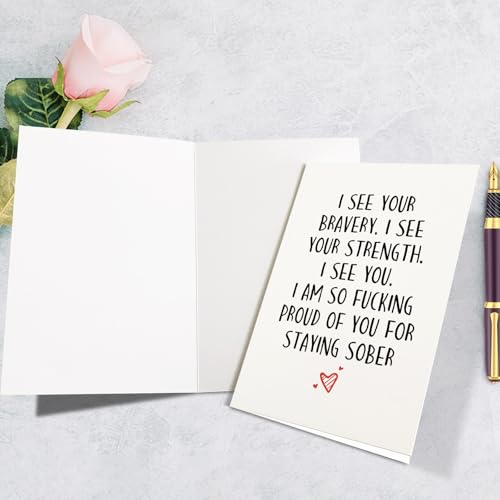 I SEE YOUR
BRAVERY. I SEE
YOUR STRENGTH.
I SEE YOU.
I AM SO FUCKING
PROUD OF YOU FOR
STAYING SOBER